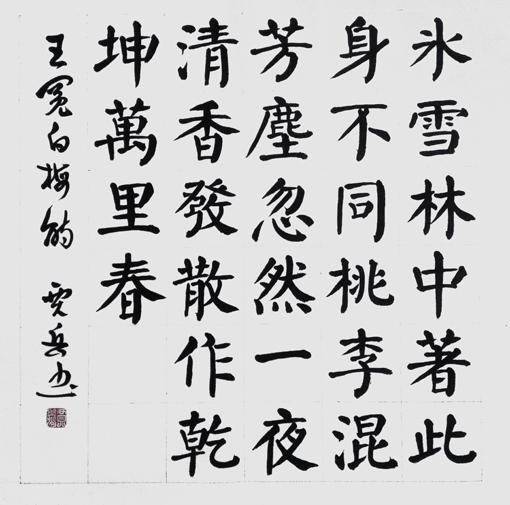 氷雪林中著此
身不同桃李混
芳塵忽然一夜
清香發散作乾
坤萬里春
王冕白梅